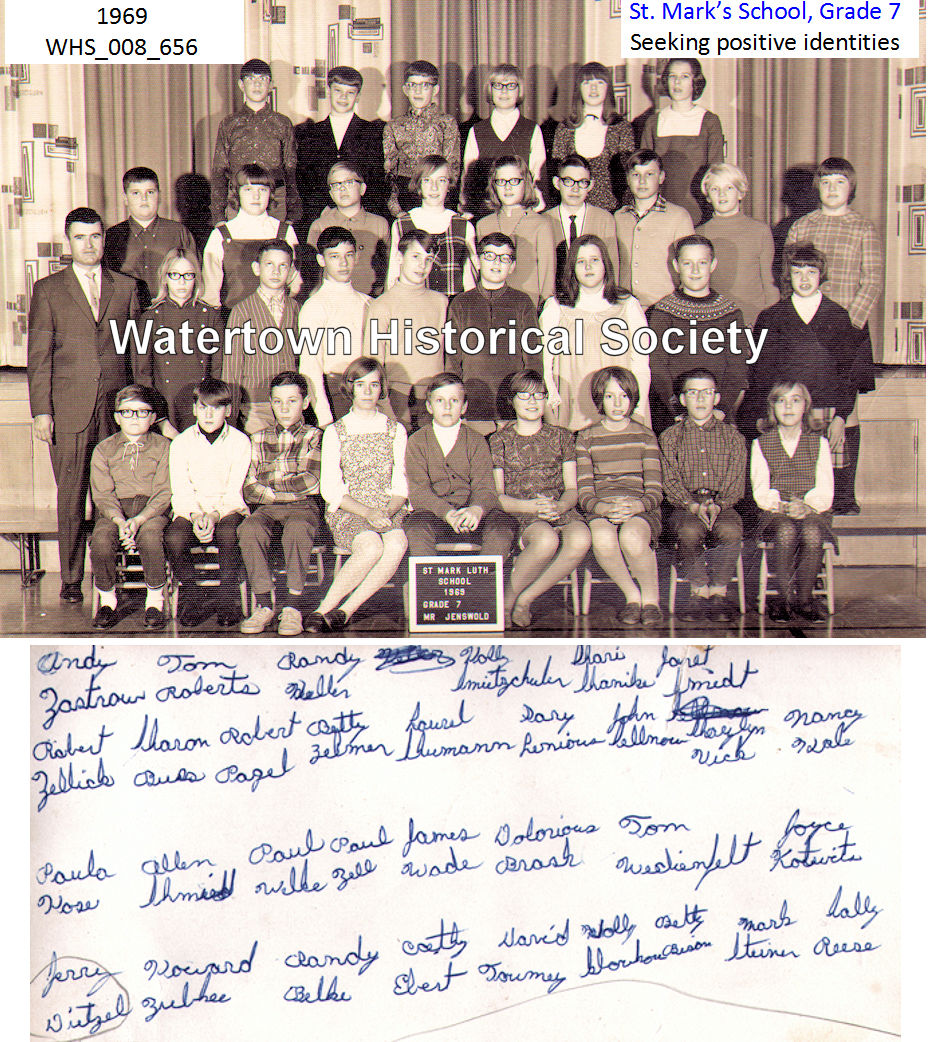 1969
WHS_008_656
St. Mark's School, Grade 7
Seeking positive identities
Watertown Historical Society
ST MARK LUTH
SCHOOL
1969
GRADE 7
MR JENSWOLD
Andy Tom Randy Holly Shari Janet
Zastrow Roberts Heller Shanike Smiedt
Robert Sharon Robert Betty Laurel Dary John Sharylyn Nancy
Zellick Buss Pagel Zellmer Shumann Lenious Pellnow Vick Hale
Paula Allen Paul Paul James Dolorious Tom Joyce
Hose Wilke Zell Wade Brash Kotwitz
Jerry Howard Randy Cathy David Holly Betty Mark Sally
Dietzel Belke Ebert Toumey Steiner Reese